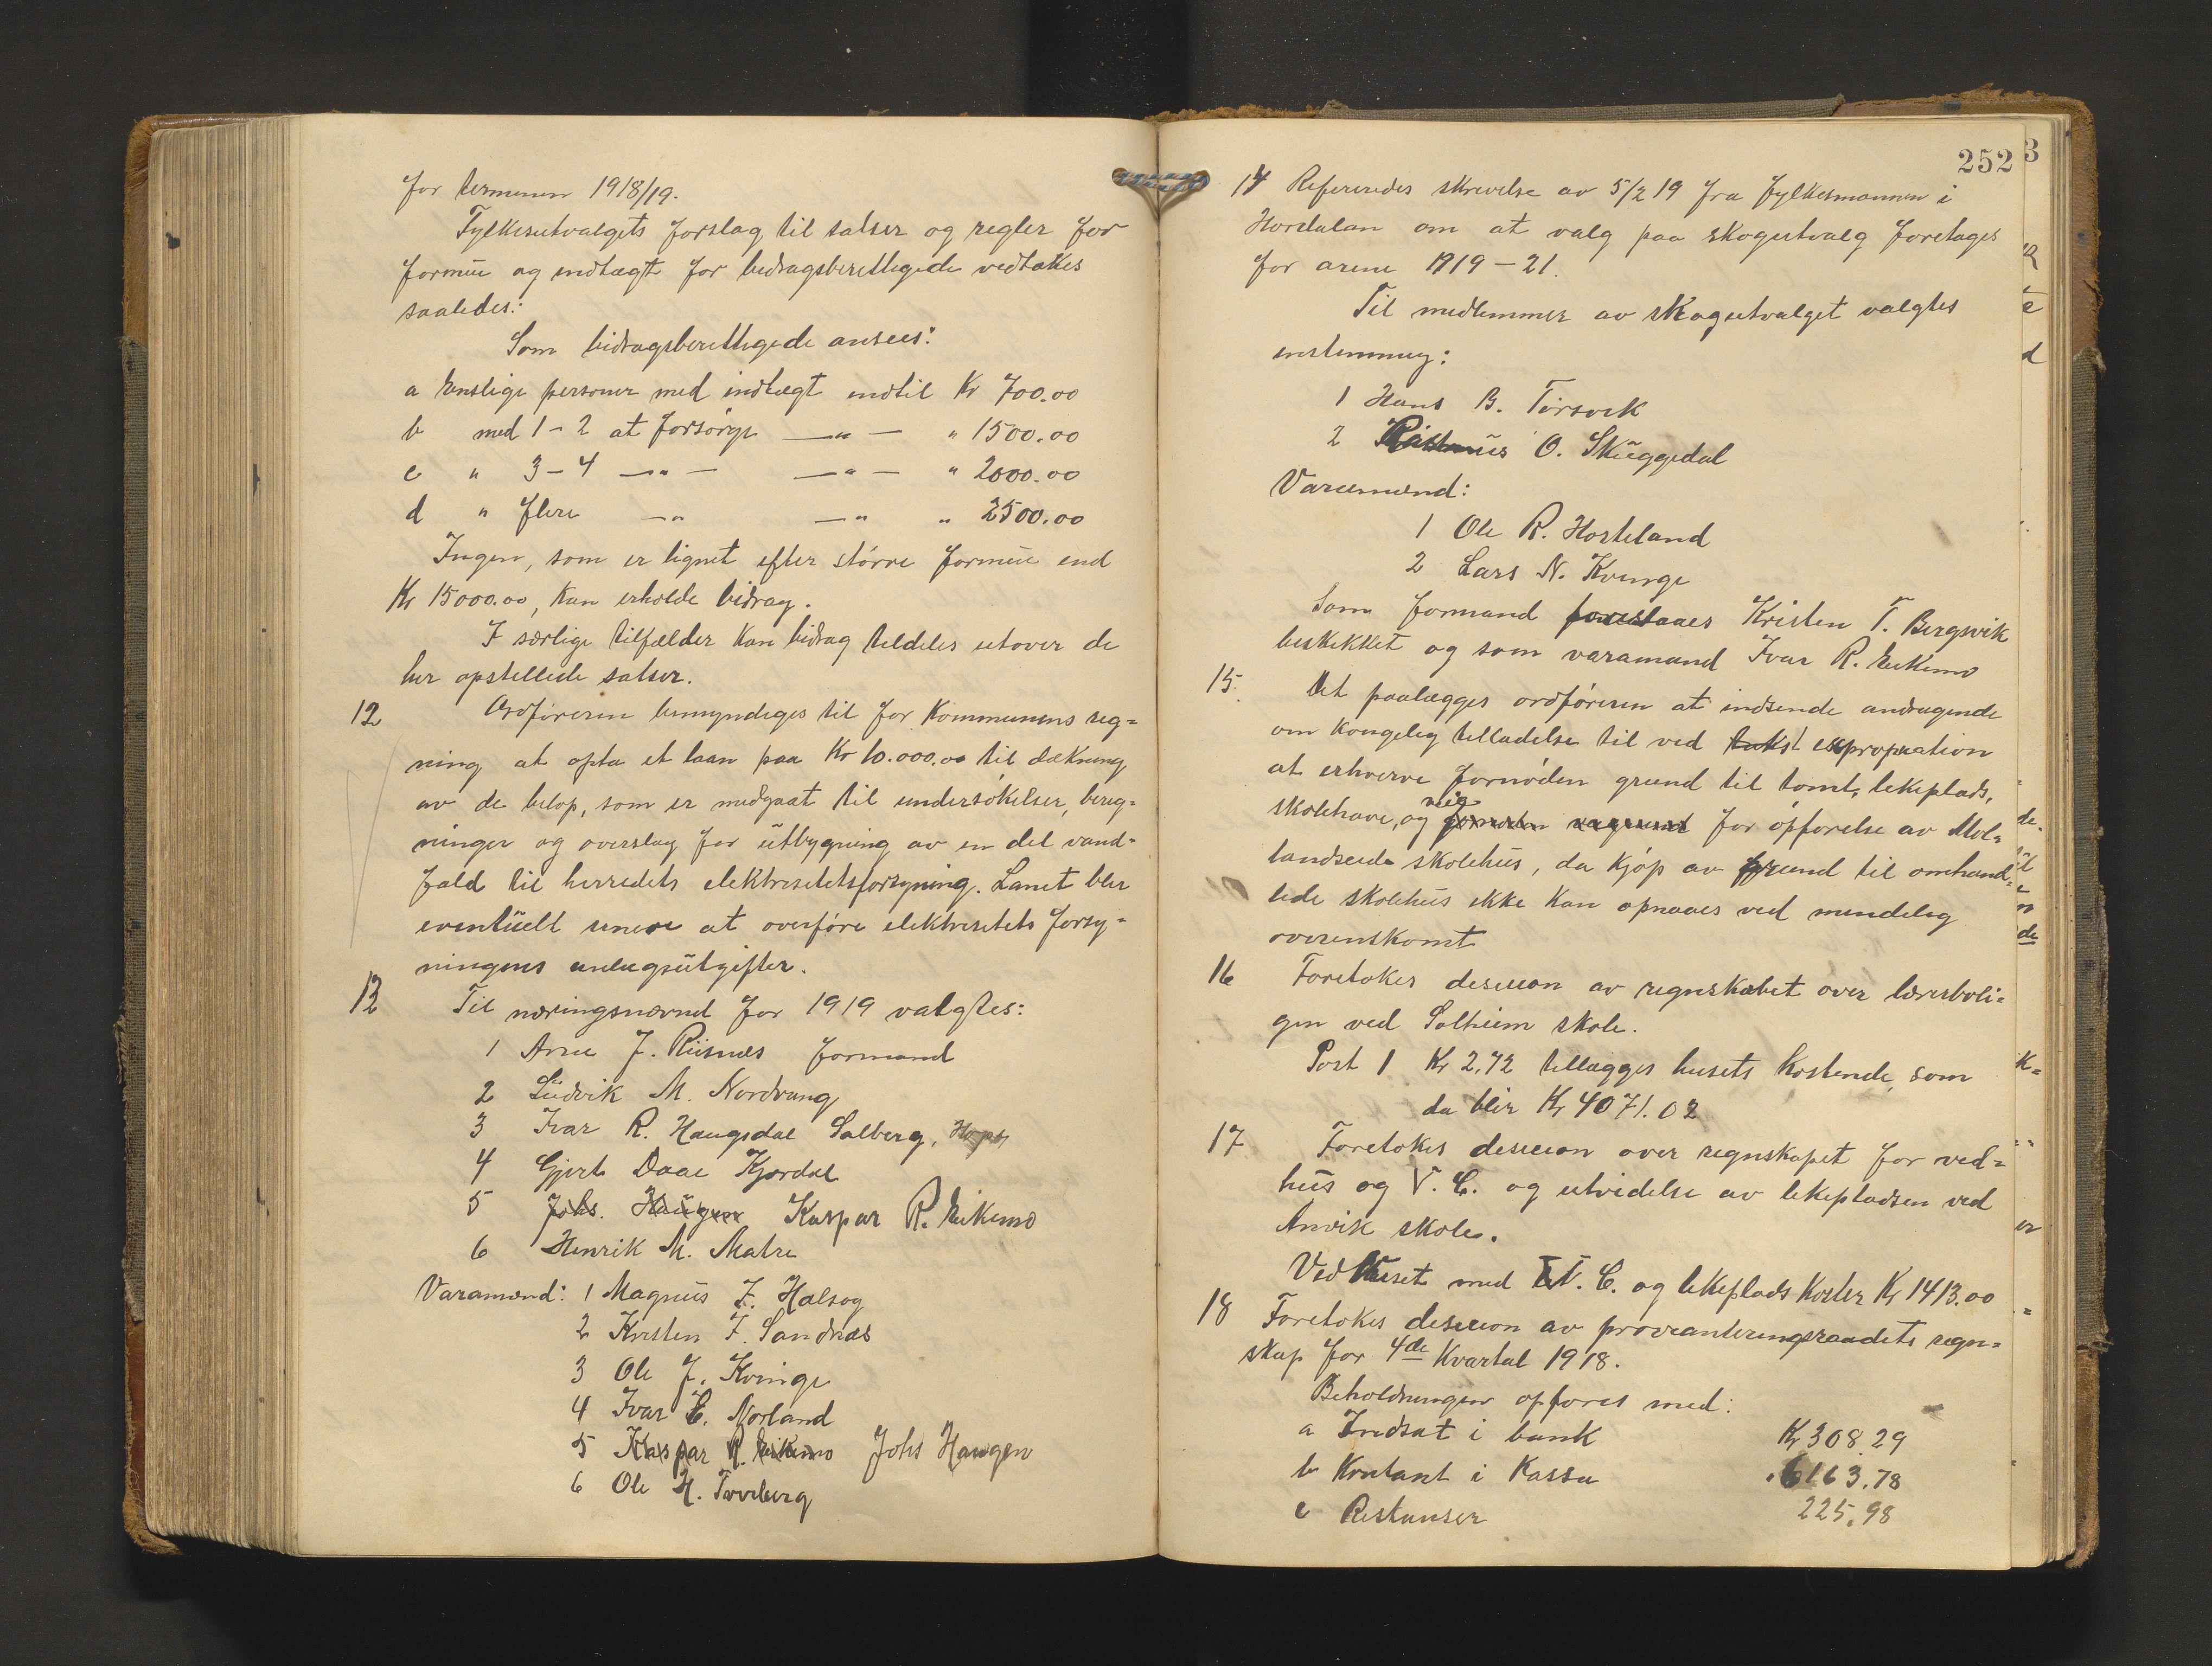 for terminen 1918/19.
Fylkesutvalgets forslag til satser og regler for
formue og indtægt for bidragsberettigede vedtakes
saaledes:
Som bidragsberettigede ansees:
a Enslige personer med indtægt indtil Kr 700.00
b med 1-2 at forsørge —"— " 1500.00
c " 3-4 —"— —"— " 2000.00
d " flere —" —" " 2500.00
Ingen, som er lignet efter større formue end
Kr 15000.00, kan erholde bidrag.
I særlige tilfælder kan bidrag tildeles utover de
her opstillede satser.
12 Ordføreren bemyndiges til for kommunens reg=
ning at opta et laan paa Kr 10.000.00 til dækning
av de beløp, som er medgaat til undersøkelser, bereg=
ninger og overslag for utbygning av en del vand=
fald til herredets elektrisitetsforsyning. Lanet blir
eventuelt senere at overføre elektrisitets forsy=
ningens anlægsutgifter.
13 Til næringsnævnd for 1919 valgtes:
1 Arne J. Riisnes formand
2 Ludvik M. Nordvang
3 Ivar R. Haugsdal Solberg, Hope
4 Gjert Daae Kjordal
5 Johs. Haugen Kaspar R. Eikemo
6 Henrik M. Matre
Varamænd: 1 Magnus I. Halsøg
2 Kristen I. Sandnæs
3 Ole J. Kvinge
4 Ivar E. Norland
5 Kaspar R. Eikemo Johs Haugen
6 Ole H. Tverberg
252
3
14 Refereredes skrivelse av 5/2 19 fra fylkesmannen i
Hordalan om at valg paa skogutvalg foretages
for arene 1919-21.
Til medlemmer av skogutvalget valgtes
enstemmig:
1 Hans B. Torsvik
2 Rasmus O. Skuggedal
Varamænd:
1 Ole R. Hosteland
2 Lars N. Kvinge
Som formand foreslaaes Kristen T. Bergsvik
beskikket og som varamand Ivar R. Eikemo
15. Det paalægges ordføreren at indsende andragende
om kongelig tilladelse til ved takst expropriation
at erhverve fornøden grund til tomt, lekeplads,
skolehave, og fornøden veigrund veig for opførelse av Mol=
landseide skolehus, da kjøp av grund til omhand=
lede skolehus ikke kan opnaaes ved mindelig
overenskomst
16 Foretokes desision av regnskabet over lærerboli=
gen ved Solheim skole.
Post 1 Kr 2,72 tillægges husets kostende, som
da blir Kr 4071.02
17 Foretokes desision over regnskapet for ved=
hus og V. C. og utvidelse av lekepladsen ved
Anvik skole.
Vedhuset med V. C. og lekeplads koster Kr 1413.00
18 Foretokes desision av provianteringsraadets regn=
skap for 4de kvartal 1918.
Beholdningen opføres med:
a Indsat i bank Kr 308.29
b Kontant i kassa " 6163.78
c Restanser 225.98